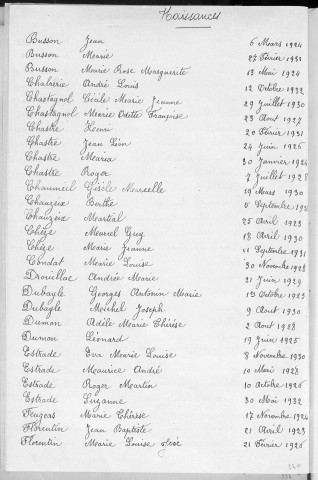 Naissances
Busson Jean 6 Mars 1924
Busson Marie 27 Février 1931
Busson Marie Rose Marguerite 13 Mai 1924
Chabrerie André Louis 12 Octobre 1932
Chastagnol Cécile Marie Jeanne 29 Juillet 1930
Chastagnol Marie Odette Françoise 23 Août 1927
Chastre Henri 20 Février 1931
Chastre Jean Léon 24 Juin 1926
Chastre Maria 30 Janvier 1924
Chastre Roger 7 Juillet 1928
Chaumeil Gisèle Marcelle 19 Mars 1930
Chauzeix Berthe 5 Septembre
Chauzeix Martial 25 Avril 1923
Chèze Marcel Guy 18 Avril 1930
Chèze Marie Jeanne 11 Septembre 1931
Condat Marie Louise 30 Novembre 1928
Drouillac Andrée Marie 21 Juin 1929
Dubayle Georges Antonin Marie 13 Octobre 1923
Dubayle Michel Joseph 9 Août 1930
Dumon Adèle Marie Thérèse 2 Août 1928
Dumon Léonard 19 Juin 1925
Estrade Eva Marie Louise 8 Novembre 1930
Estrade Maurice André 10 Mai 1928
Estrade Roger Martin 10 Octobre 1926
Estrade Suzanne 30 Mai 1932
Feugeas Marie Thérèse 17 Novembre 1924
Florentin Jean Baptiste 21 Avril 1923
Florentin Marie Louise 21 Février 1926